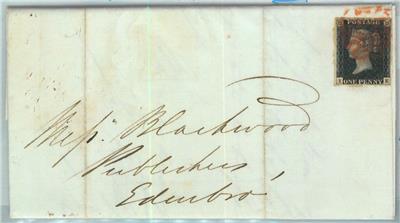 POSTAGE
ONE PENNY
Messrs. Blackwood
Publishers,
Edinbro'